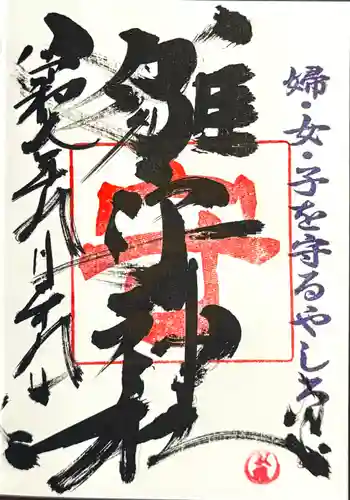 婦・女・子を守るやしろ
雛守神社
令和六年八月十八日